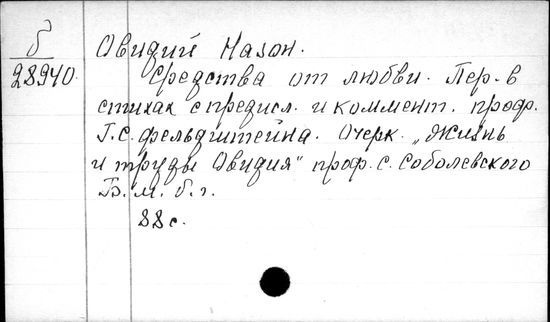 б
28940.
Овидий Назон.
Средства от любви. Пер. в
стихах с предисл. и коммент. проф.
Г.С. Фельдштейна. Очерк. „Жизнь
и труды Овидия" проф. С. Соболевского
Б. м. б. г.
88 с.